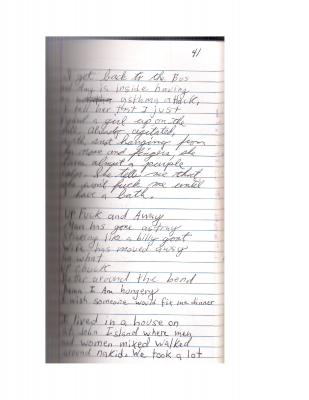 41
I get back to the Bus
and day is inside having
asthma attack,
I tell her that I just
a girl up on the
hill, already agitated,
with snot hanging from
nose and fingers she
turns almost a purple
color. She tells me that
she wont fuck me until
I have a bath.
Up Puck and Away
Man has gone astray
like a billy goat
has moved away
what
up chuck
around the bend
Mama I Am hungery
I wish someone would fix me dinner
I lived in a house on
John Island where men
and women mixed walked
around nakid. We took a lot